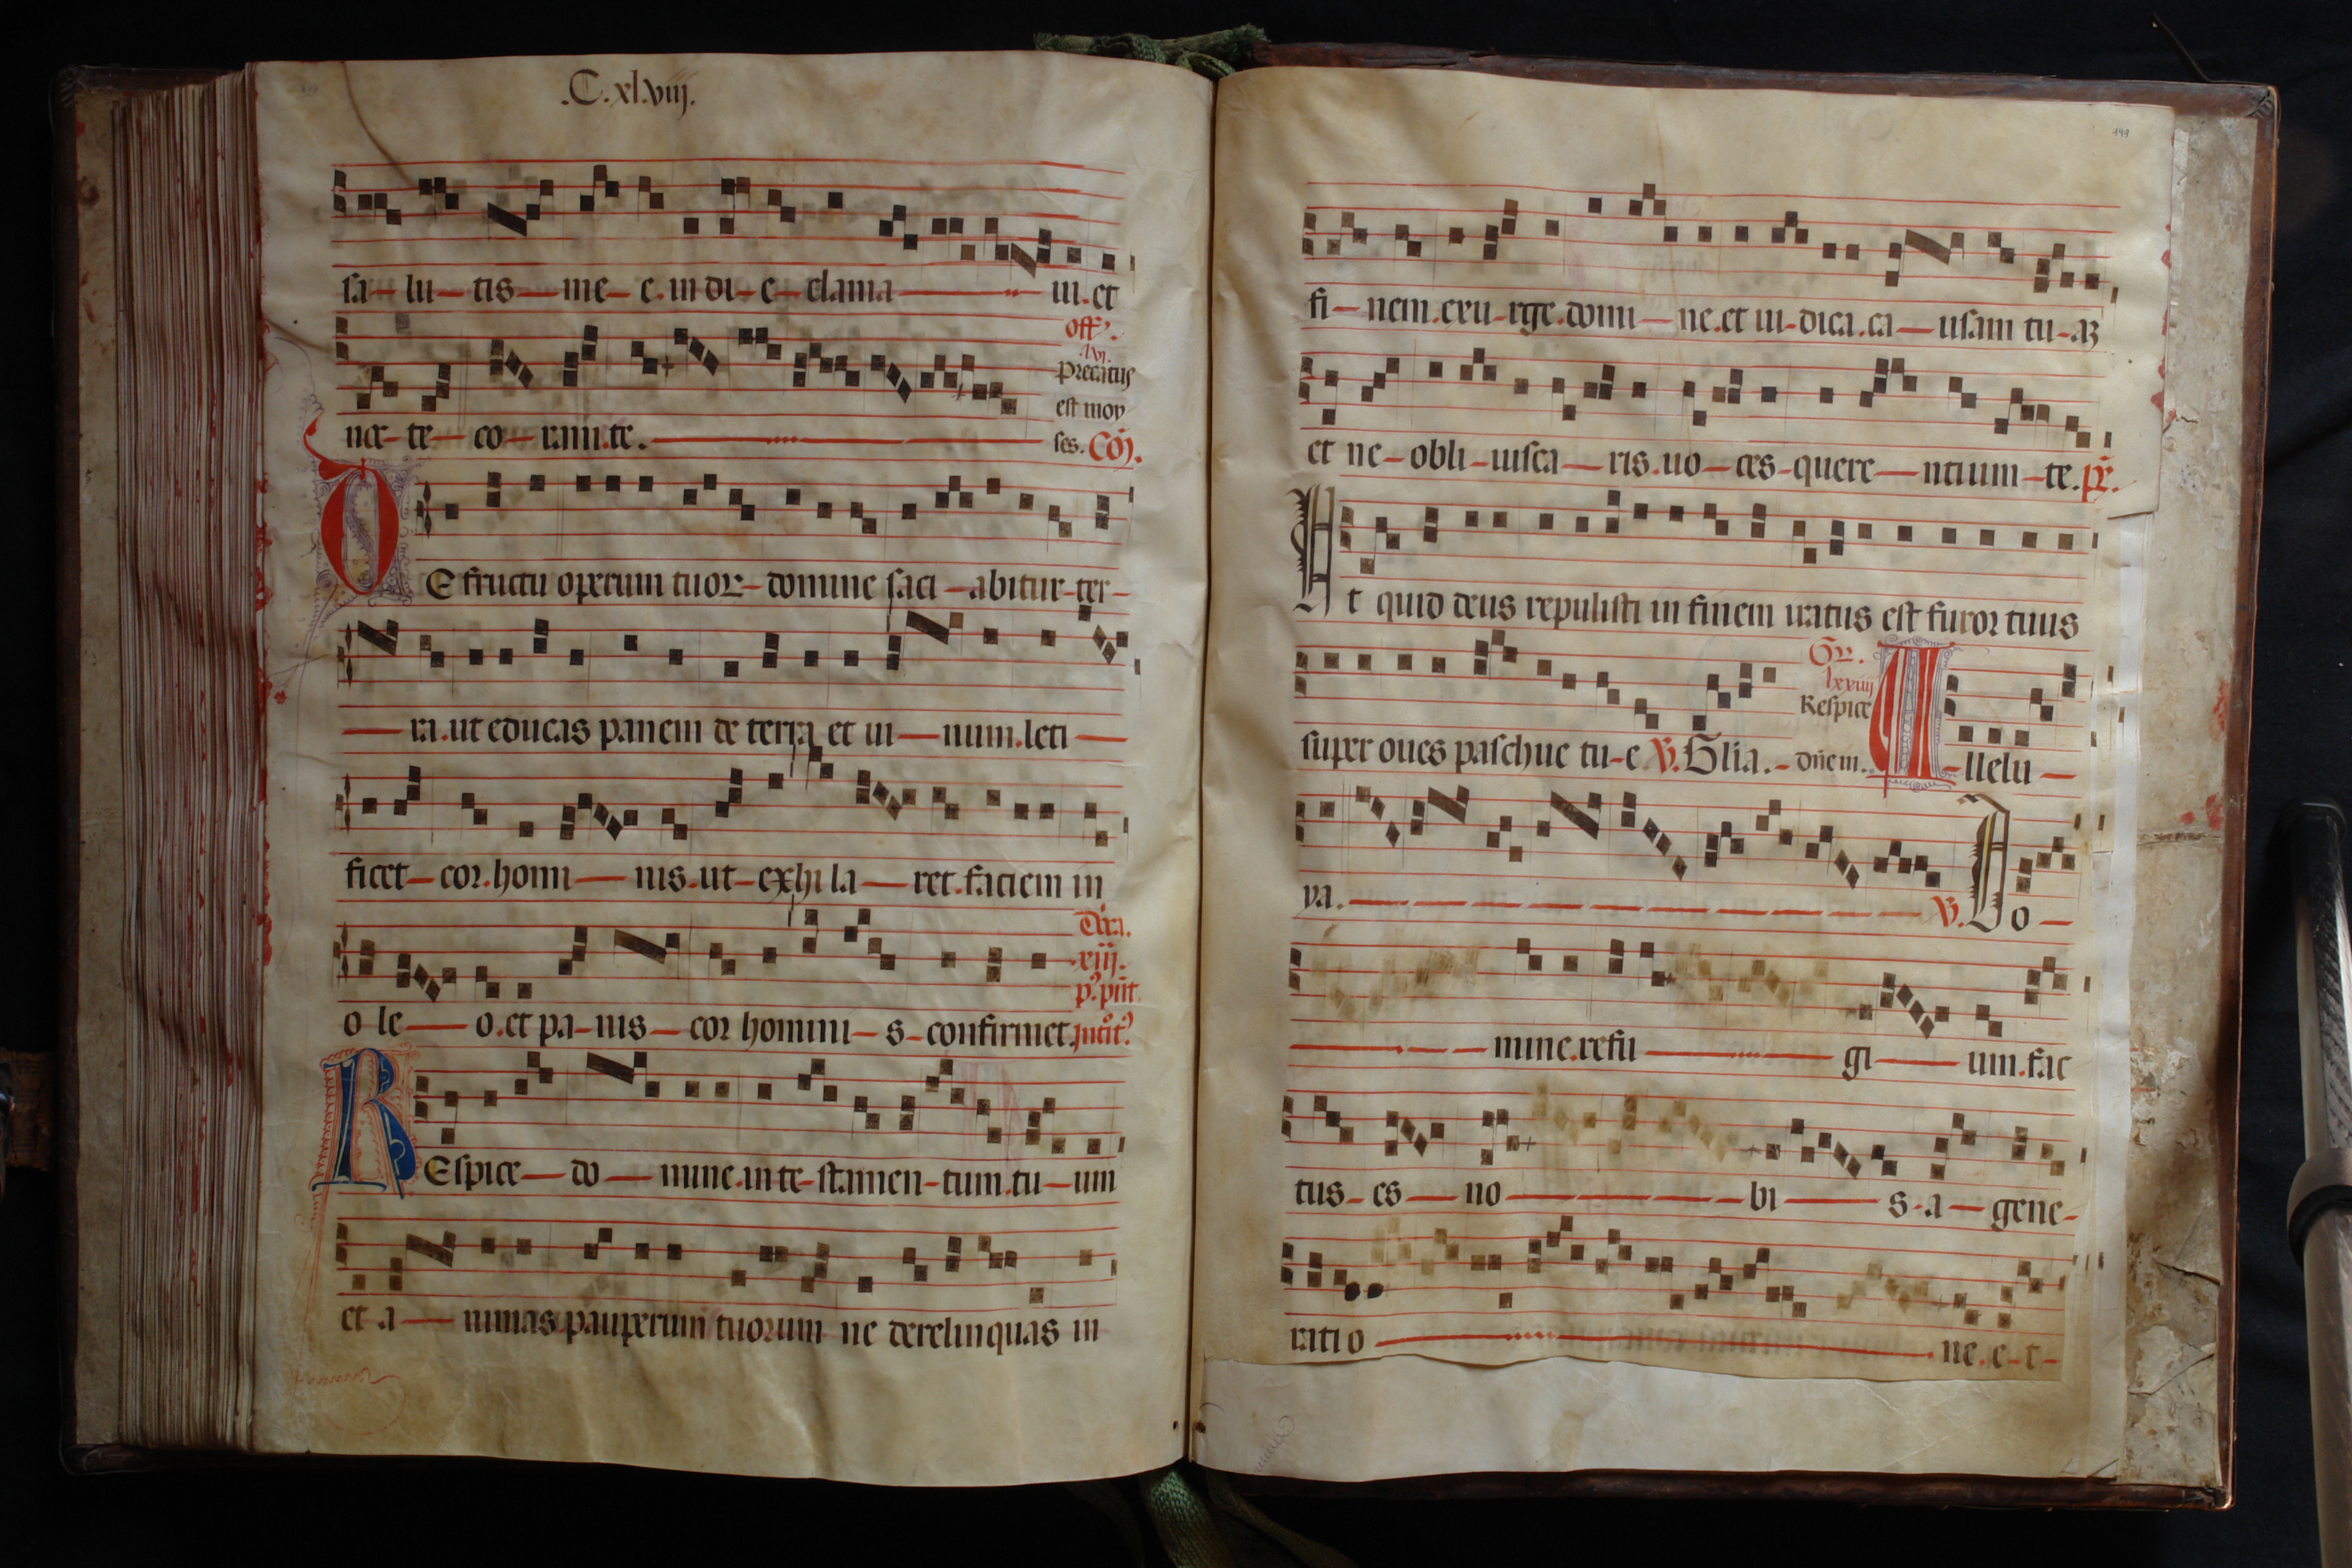 .C.xl.viij.
sa-lu-tis-me-e.in di-e-clama-ui.et
nocte-co-ram.te.
off.
lvi.
Precatus
est moy
ses. Cō.
DE fructu operum tuoꝝ-domine saci-abitur-ter-
-ra.ut educas panem de terra et ui-num.leti-
ficet-cor.homi-nis.ut-exhi la-ret.faciem in
o le-o.et pa-nis-cor homini-s-confirmet.
xiij.
REspice-do-mine.in te-stamen-tum.tu-um
et a-nimas pauperum tuorum ne derelinquas in
149
fi-nem.exu-rge.domi-ne.et iu-dica.ca-usam tu-aꝫ
et ne-obli-uisca-ris.uo-ces-quere-ntium-te.ps.
Ut quid deus repulisti in finem iratus est furor tuus
super oues paschue tu-e ℣. Glia.-
Gr.
lxxiiij
Respice
dñe in.
A-llelu-
ya.- ℣. Do-
-mine.refu-gi-um.fac
tus-es-no-bi-s-a-gene-
ratio-ne.e-t-